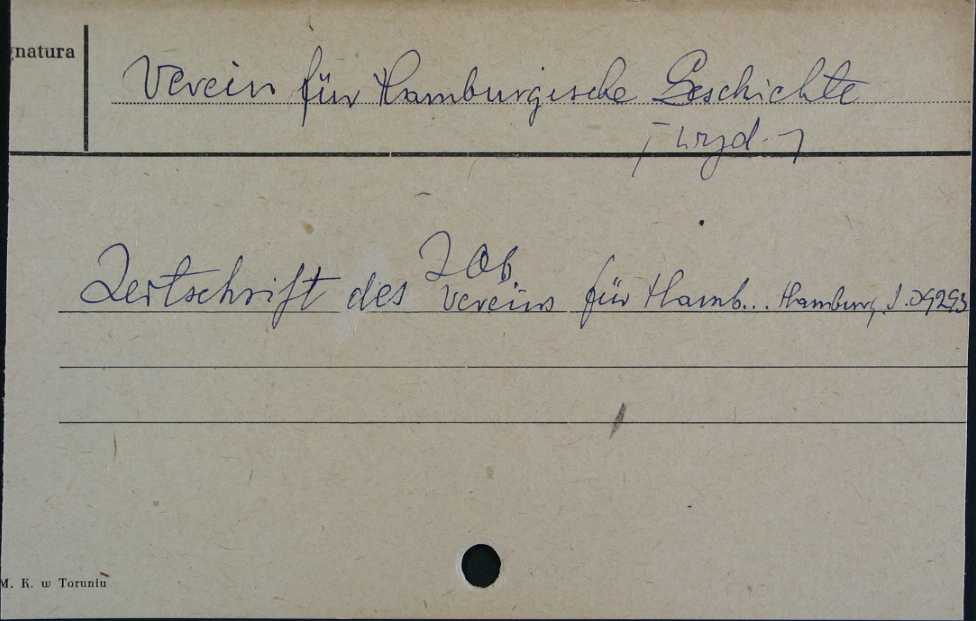 gnatura
Verein für Hamburgische Geschichte
[wyd.]
Zob
Zeitschrift des Vereins für Hamb... Hamburg, S. 09293
M. K. w Toruniu